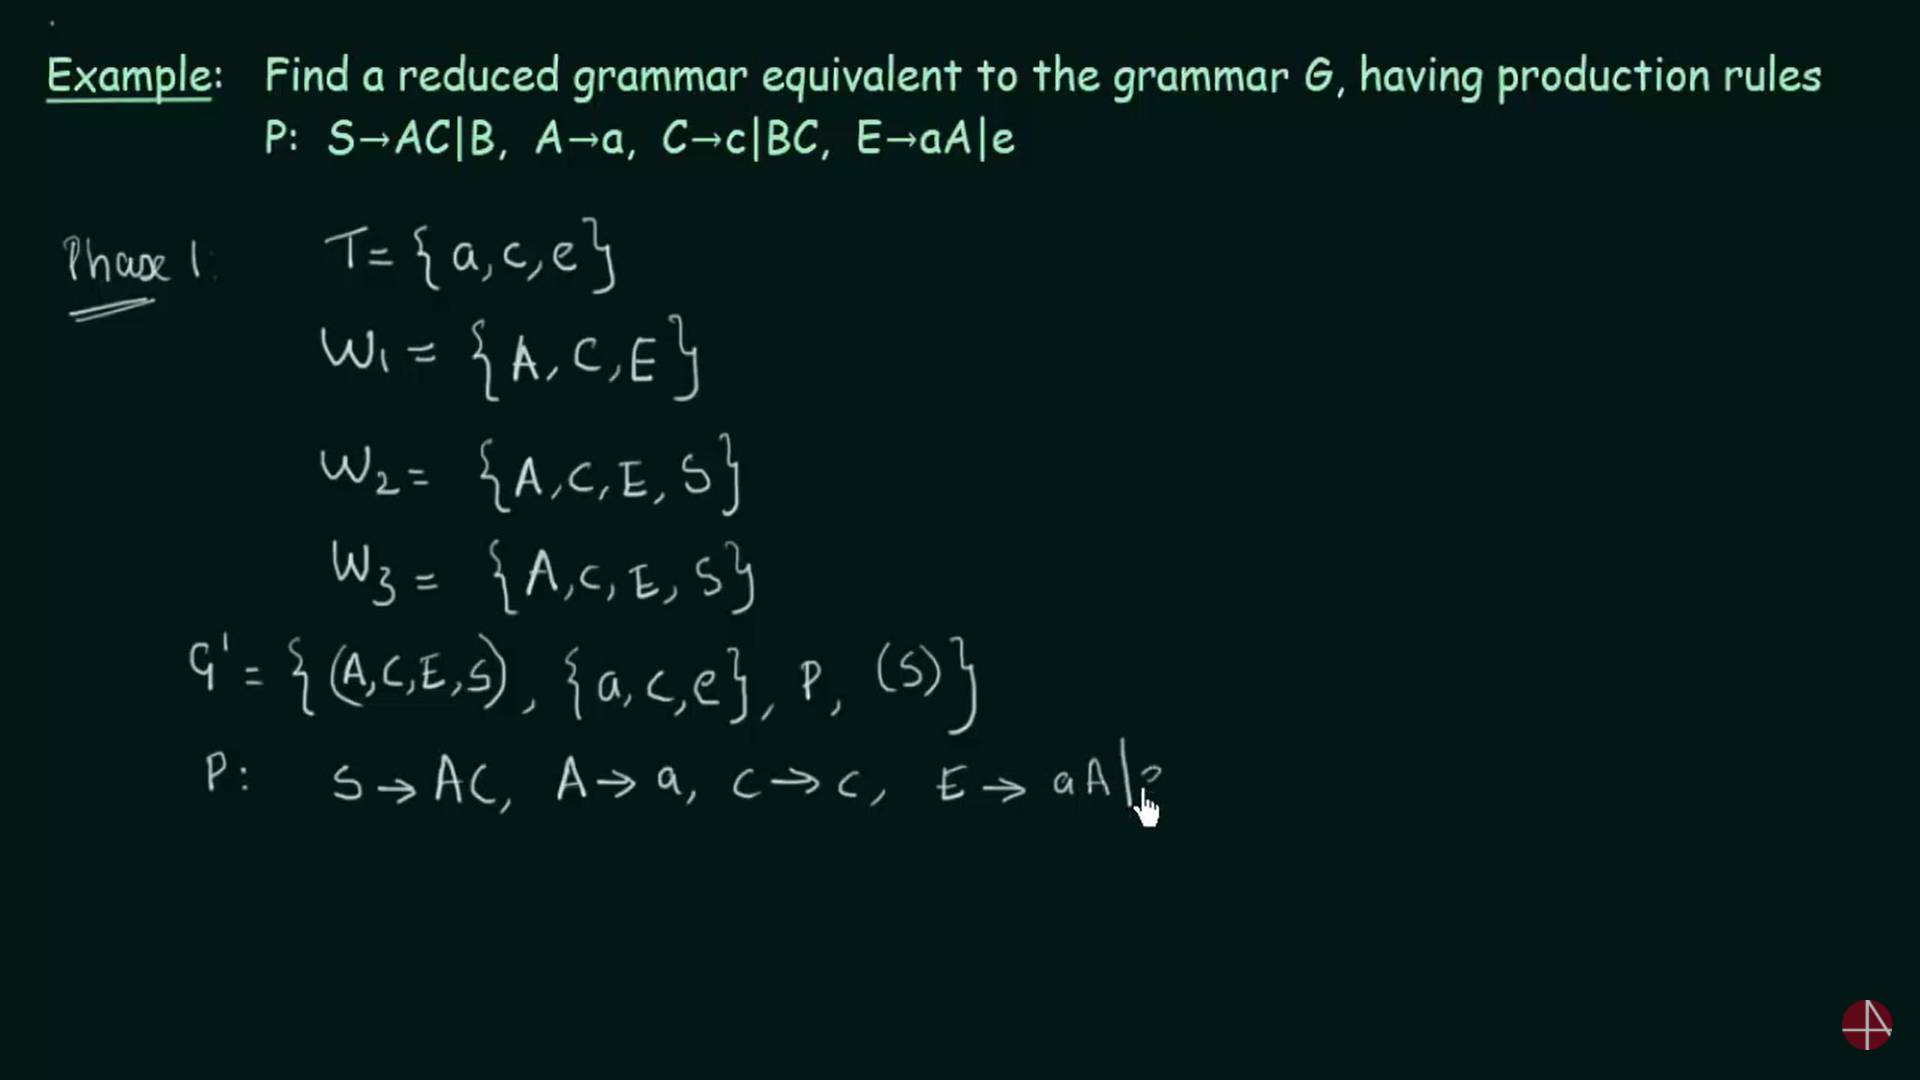 Example: Find a reduced grammar equivalent to the grammar G, having production rules
P: S→AC|B, A→a, C→c|BC, E→aA|e
Phase 1: T = {a, c, e}
W₁ = {A, C, E}
W₂ = {A, C, E, S}
W₃ = {A, C, E, S}
G' = {(A, C, E, S), {a, c, e}, P, (S)}
P: S → AC, A → a, C → c, E → aA|